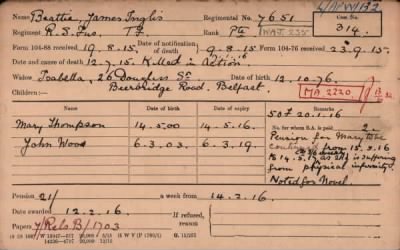 L/NW/132
Name Beattie, James Inglis Regimental No. 7651 Case No.
Regiment R. S. Fus. T. F. Rank Pte WAT 235 314
Form 104-88 received 19.8.15. Date of notification of death 9.8.15. Form 104-76 received 23.9.15.
Date and cause of death 12.7.15. Killed in Action.
Widow Isabella, 26 Douglas St Date of birth 12.10.76.
Children:— Beersbridge Road. Belfast. MA 2220.
Date of birth From To 50 F 20.1.16
Mary Thompson 14.5.00 14.5.16 No. for whom S.A. is paid 2.
John Wood 6.3.03 6.3.19. Pension for Mary to be
continued from 15.5.16
to 14.5.17 as she is suffering
from physical infirmity.
Noted for Novel.
Pension 21/ a week from 14.2.16.
Date awarded 12.2.16. If refused, reason
Papers